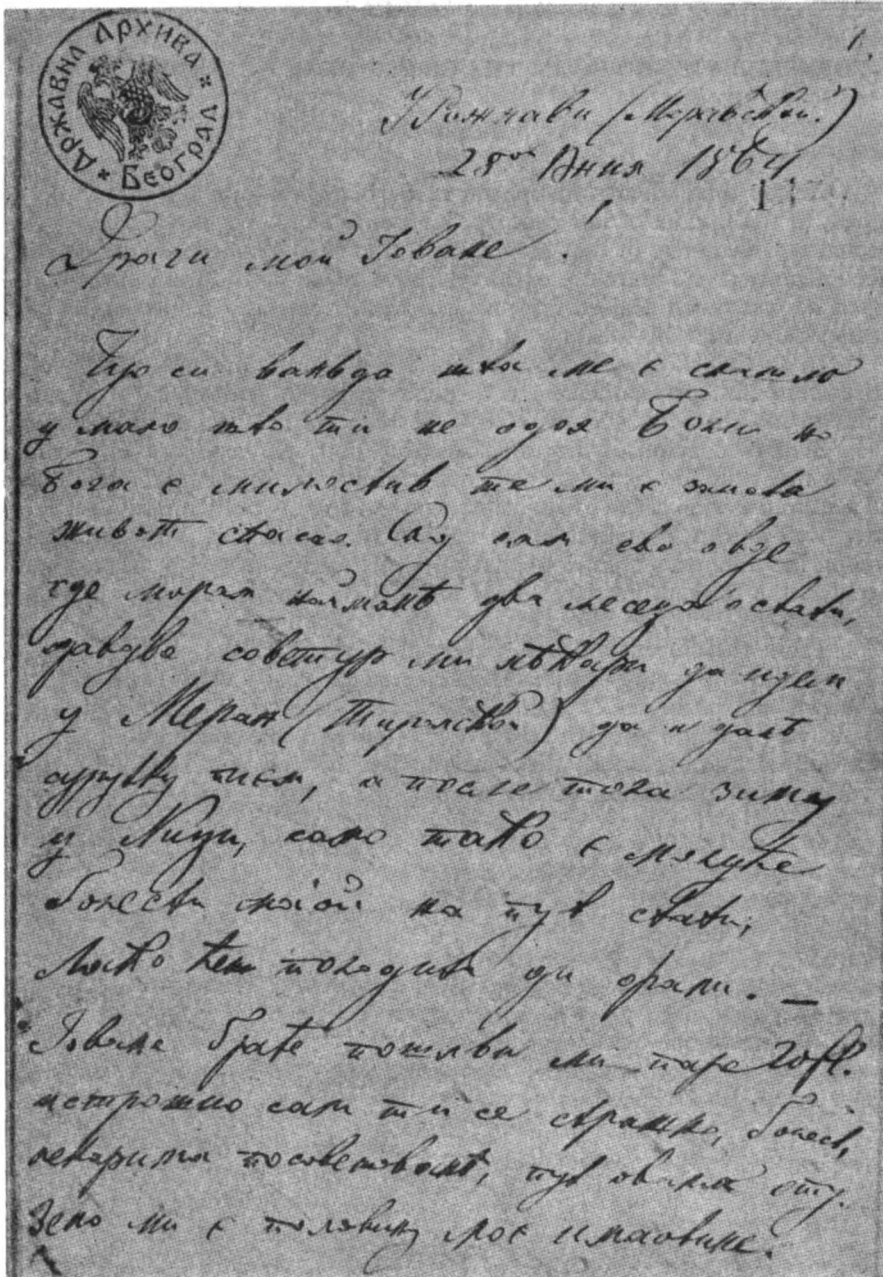 ДРЖАВНА АРХИВА * БЕОГРАД *
1.
У Рожнави (Моравской)
25ог Юния 1864
Драги мой Йоване!
Чуо си валѣда шта ме є снашло
у мало што ти не одох Богу но
Бог є милостив те ми є знова
живот спасао. Сад сам ево овде
где морам найманѣ два месеца остати,
одавде советую ми лѣкари да идем
у Меран (Тиролской) да и далѣ
сурутку пием, а после тога зиму
у Ници, само тако є могуће
болести моіой на пут стати;
Лако ћеш погодити ди фали. —
Йоване брате пошльи ми паре 20 fl.
истрошио сам ти се страшно, болест,
лекарима посаветованѣ, пут овамо оту
зело ми є половину моє имаовине.